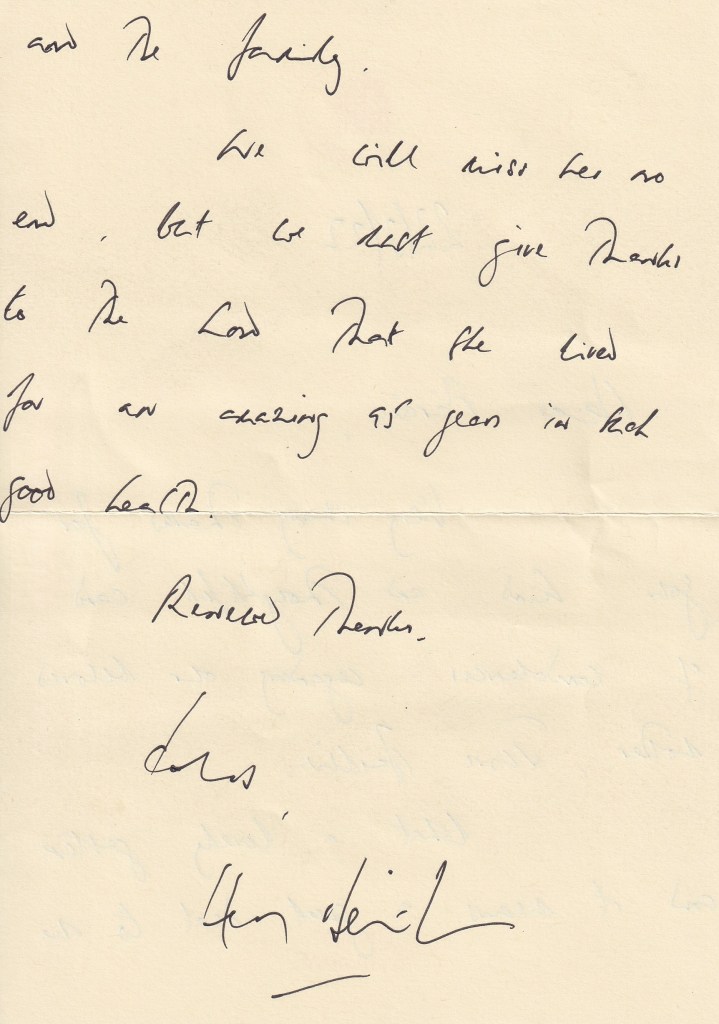 and the family.
We will miss her no
end, but we must give thanks
to the Lord that she lived
for an amazing 95 years in such
good health.
Renewed Thanks.
Henry